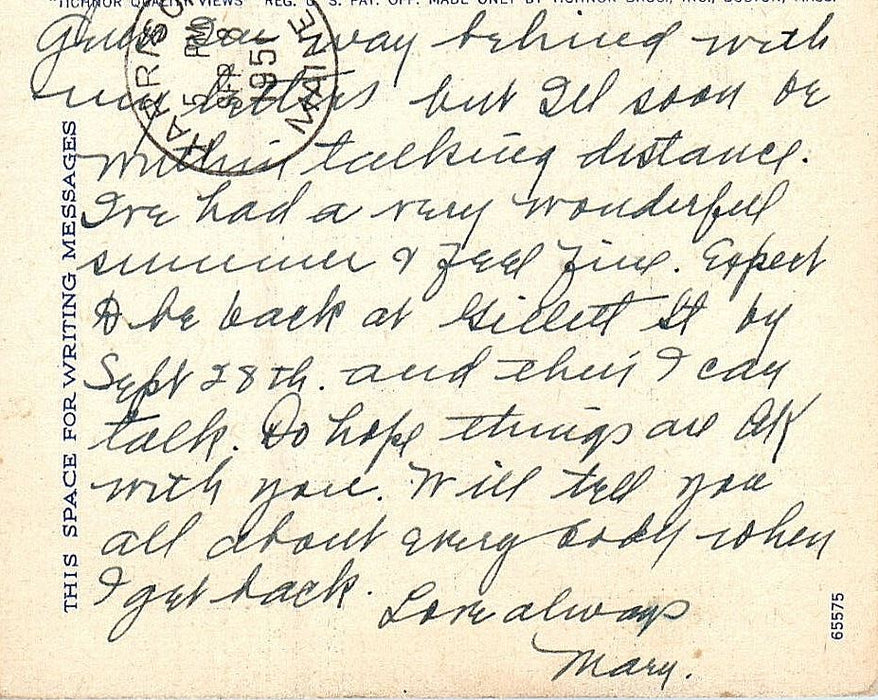 "TICHNOR QUALITY VIEWS" REG. U. S. PAT. OFF. MADE ONLY BY TICHNOR BROS., INC., BOSTON, MASS.
Guess I'm way behind with
my letters but I'll soon be
within talking distance.
I've had a very wonderful
summer & feel fine. Expect
to be back at Gillett St by
Sept 28th. and then I can
talk. Do hope things are OK
with you. Will tell you
all about every body when
I get back.
Love always
Mary.
HARRISON
MAINE
5 PM
SEP 8
1951
THIS SPACE FOR WRITING MESSAGES
65575